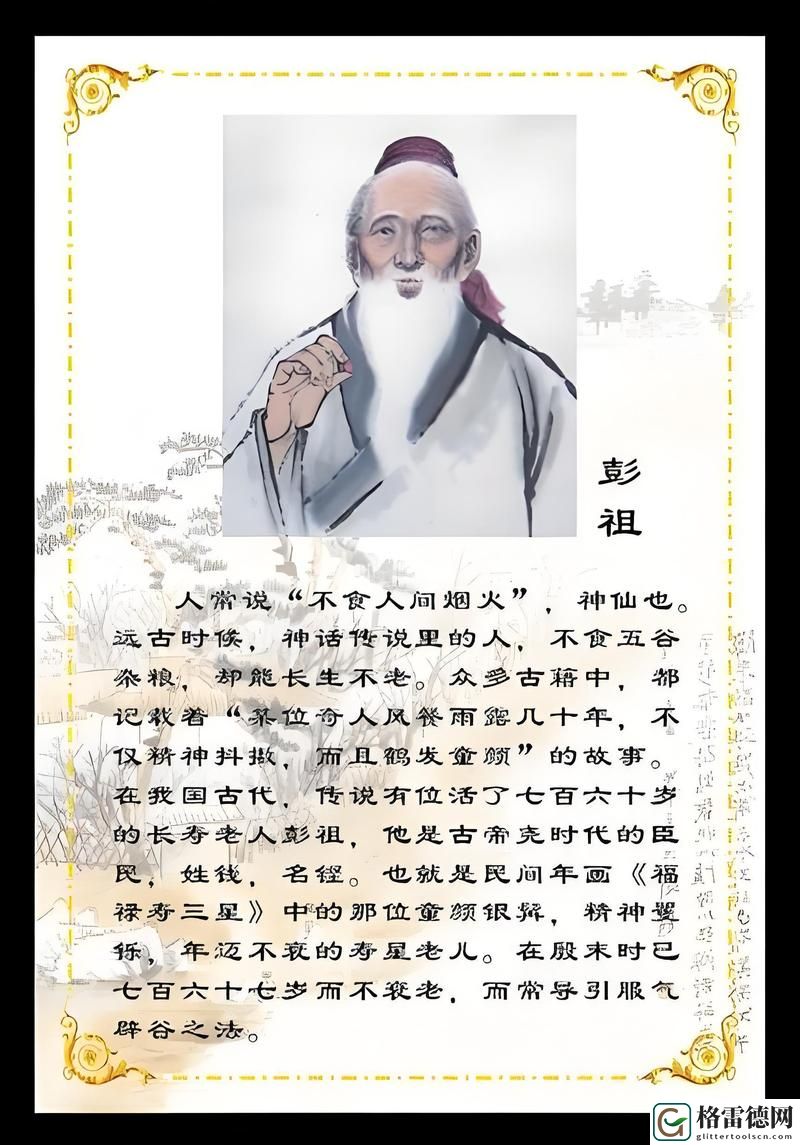 彭
祖
人常说“不食人间烟火”，神仙也。
远古时候，神话传说里的人，不食五谷
杂粮，却能长生不老。众多古藉中，都
记载着“某位奇人风餐雨露几十年，不
仅精神抖擞，而且鹤发童颜”的故事。
在我国古代，传说有位活了七百六十岁
的长寿老人彭祖，他是古帝尧时代的臣
民，姓钱，名铿。也就是民间年画《福
禄寿三星》中的那位童颜银髯，精神矍
铄，年迈不衰的寿星老儿。在殷末时已
七百六十七岁而不衰老，而常导引服气
辟谷之法。
格雷德网
glittertoolscn.com